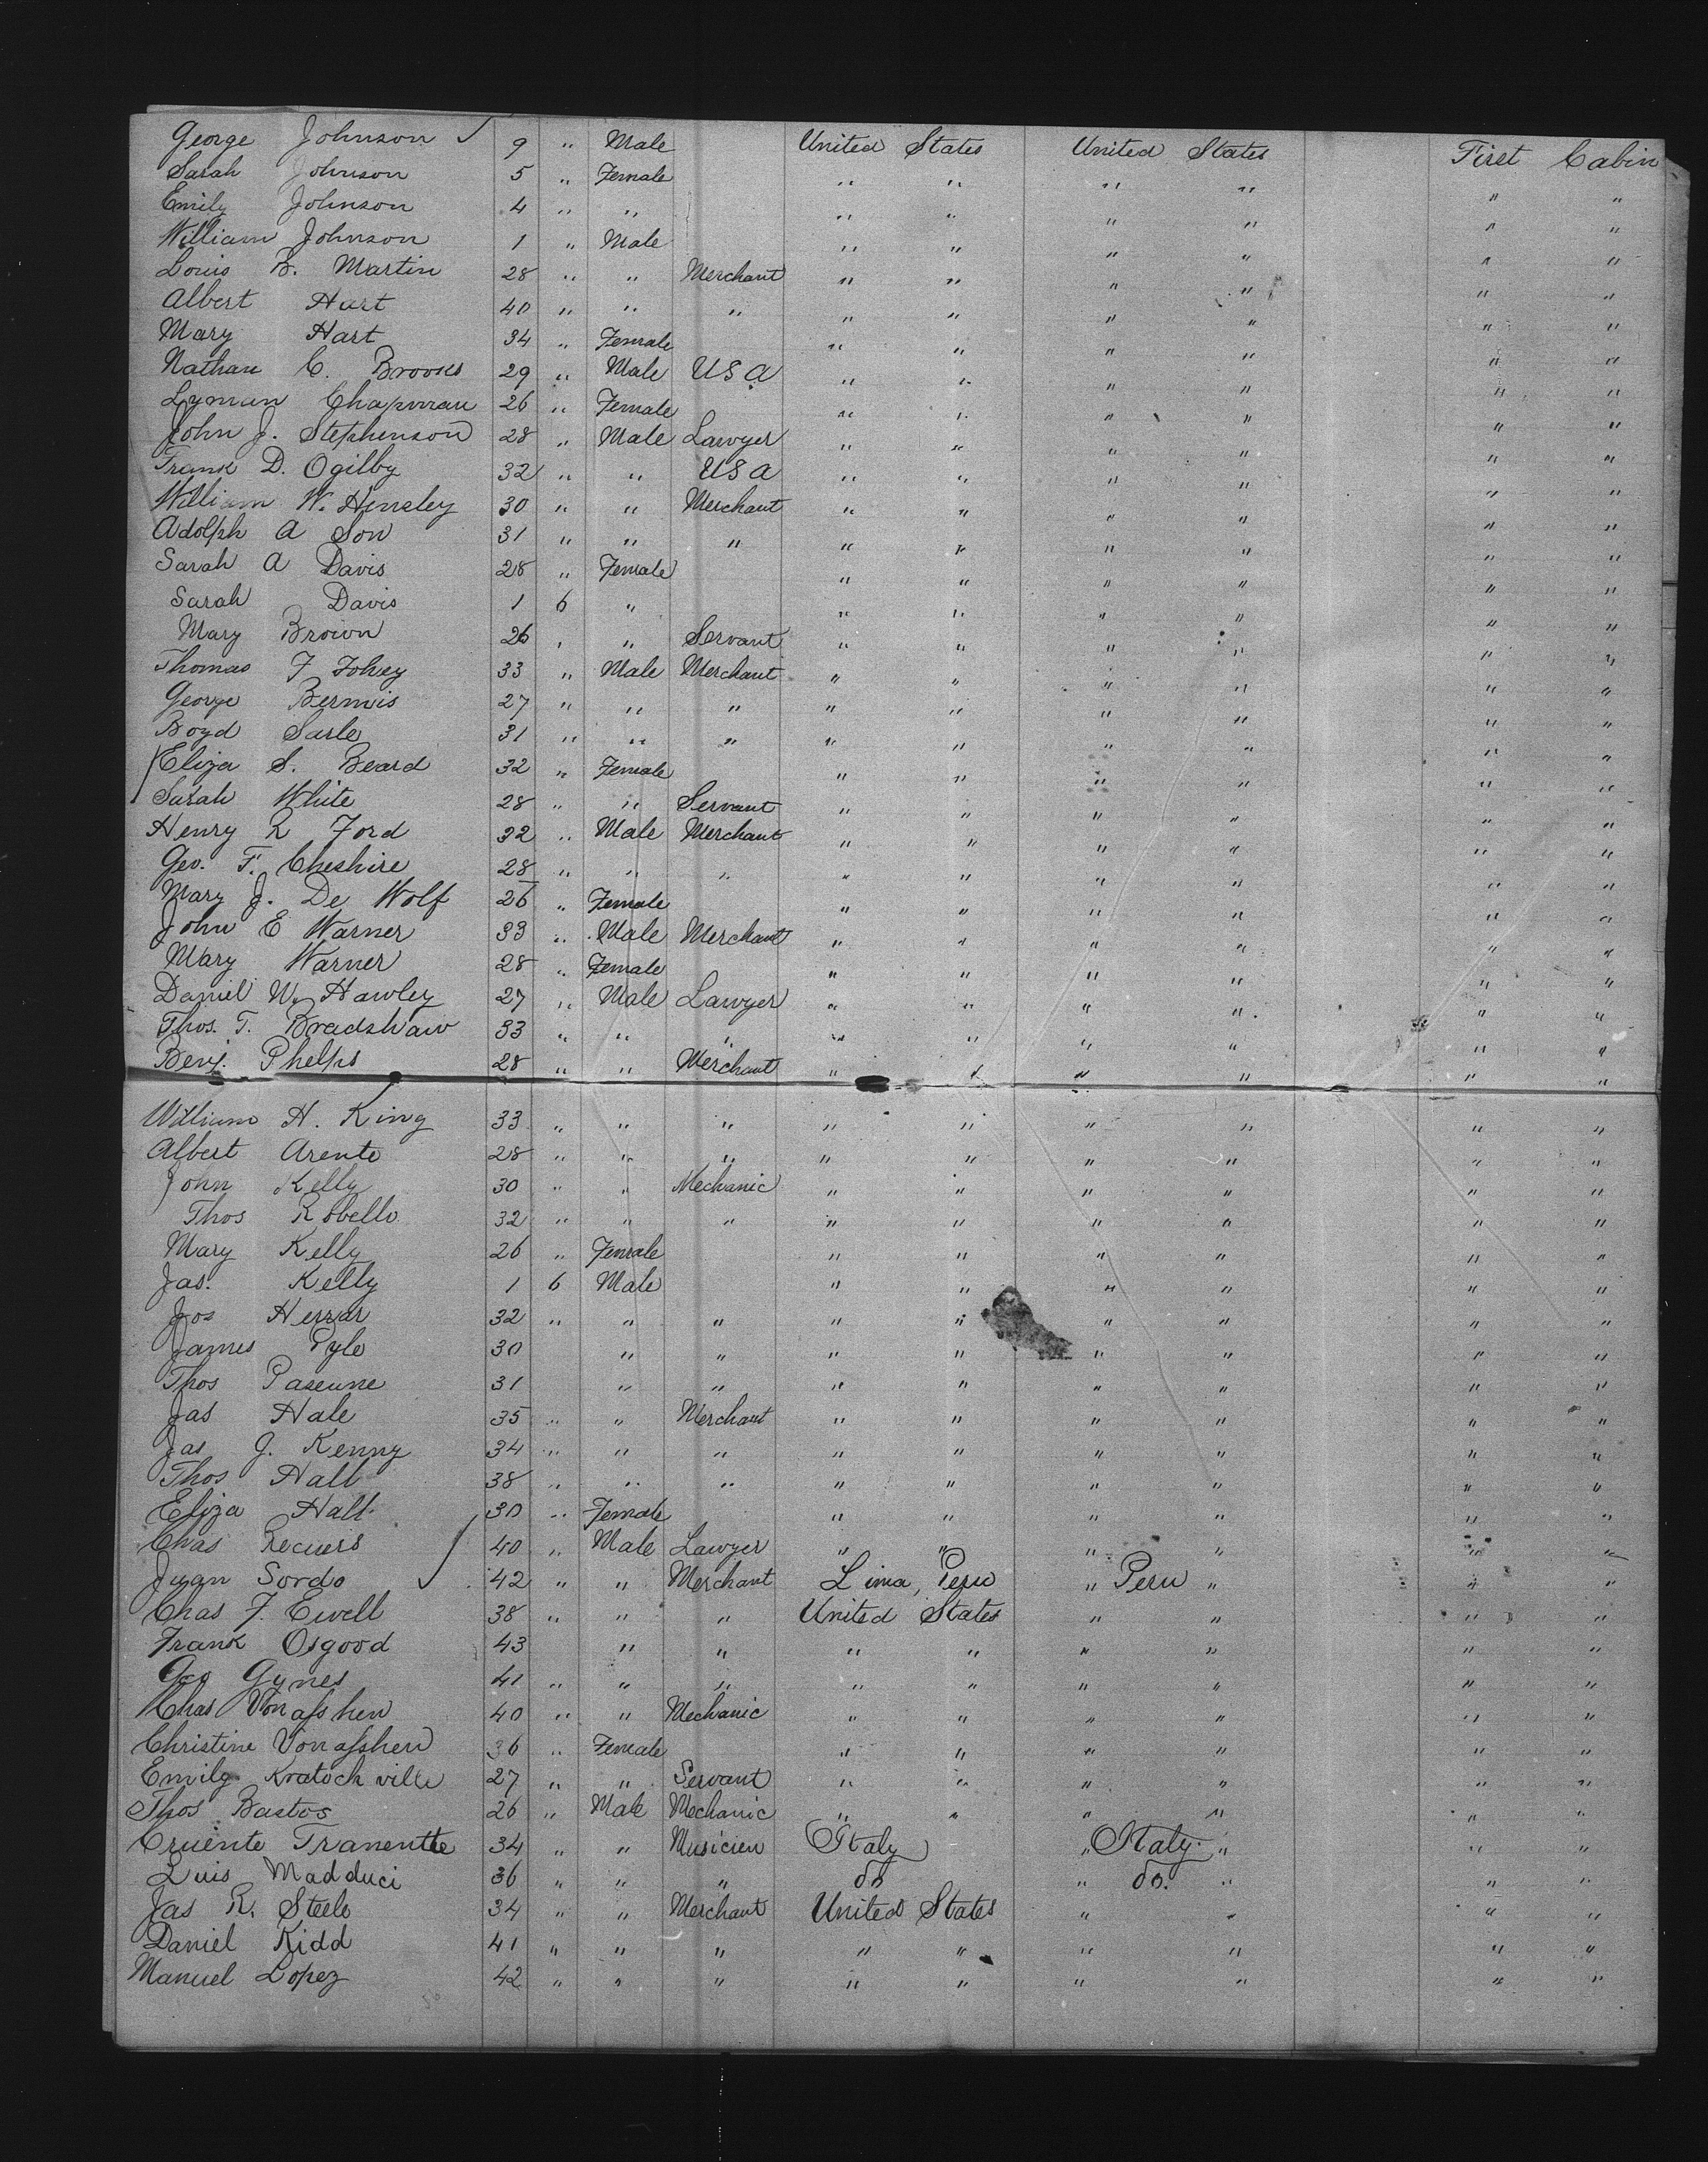 George Johnson ✓ 9 " Male United States United States First Cabin
Sarah Johnson 5 " Female " " " " " "
Emily Johnson 4 " " " " " " " "
William Johnson 1 " Male " " " " " "
Louis B. Martin 28 " " Merchant " " " " " "
Albert Hart 40 " " " " " " " " "
Mary Hart 34 " Female " " " " " "
Nathan C. Brooks 29 " Male U S A " " " " " "
Lyman Chapman 26 " Female " " " " " "
John J. Stephenson 28 " Male Lawyer " " " " " "
Frank D. Ogilby 32 " " U S A " " " " " "
William W. Hensley 30 " " Merchant " " " " " "
Adolph A Son 31 " " " " " " " " "
Sarah A Davis 28 " Female " " " " " "
Sarah Davis 1 6 " " " " " " "
Mary Brown 26 " " Servant " " " " " "
Thomas F Fohey 33 " Male Merchant " " " " " "
George Bermis 27 " " " " " " " " "
Boyd Sarle 31 " " " " " " " " "
Eliza S. Beard 32 " Female " " " " " "
Sarah White 28 " " Servant " " " " " "
Henry R Ford 32 " Male Merchant " " " " " "
Geo. F. Cheshire 28 " " " " " " " " "
Mary J. De Wolf 26 " Female " " " " " "
John E Warner 33 " Male Merchant " " " " " "
Mary Warner 28 " Female " " " " " "
Daniel W. Hawley 27 " Male Lawyer " " " " " "
Thos. T. Bradshaw 33 " " " " " " " " "
Benj. Phelps 28 " " Merchant " " " " " "
William H. King 33 " " " " " " " " "
Albert Arente 28 " " " " " " " " "
John Kelly 30 " " Mechanic " " " " " "
Thos Robello 32 " " " " " " " " "
Mary Kelly 26 " Female " " " " " "
Jas. Kelly 1 6 Male " " " " " "
Jos Herrar 32 " " " " " " " " "
James Pyle 30 " " " " " " " "
Thos 31 " " " " " " " "
Jas Hale 35 " " Merchant " " " " " "
Jas J. Kenny 34 " " " " " " " " "
Thos Hall 38 " " " " " " " " "
Eliza Hall 30 " Female " " " " " "
Chas 40 " Male Lawyer " " " " " "
Juan Sordo ✓ 42 " " Merchant Lima, Peru " Peru " " "
Chas F. Ewell 38 " " " United States " " " "
Frank Osgood 43 " " " " " " " "
Geo Gynes 41 " " " " " " " " "
Chas Vonasshen 40 " " Mechanic " " " " " "
Christine Vonasshen 36 " Female " " " " " "
Emily Kratochville 27 " " Servant " " " " " "
Thos Bastos 26 " Male Mechanic " " " " " "
Cruente Tranentte 34 " " Musicien Italy " Italy. " " "
Luis Madduci 36 " " " do " do. " " "
Jas R. Steele 34 " " Merchant United States " " " "
Daniel Kidd 41 " " " " " " " " "
Manuel Lopez 42 " " " " " " " " "
56